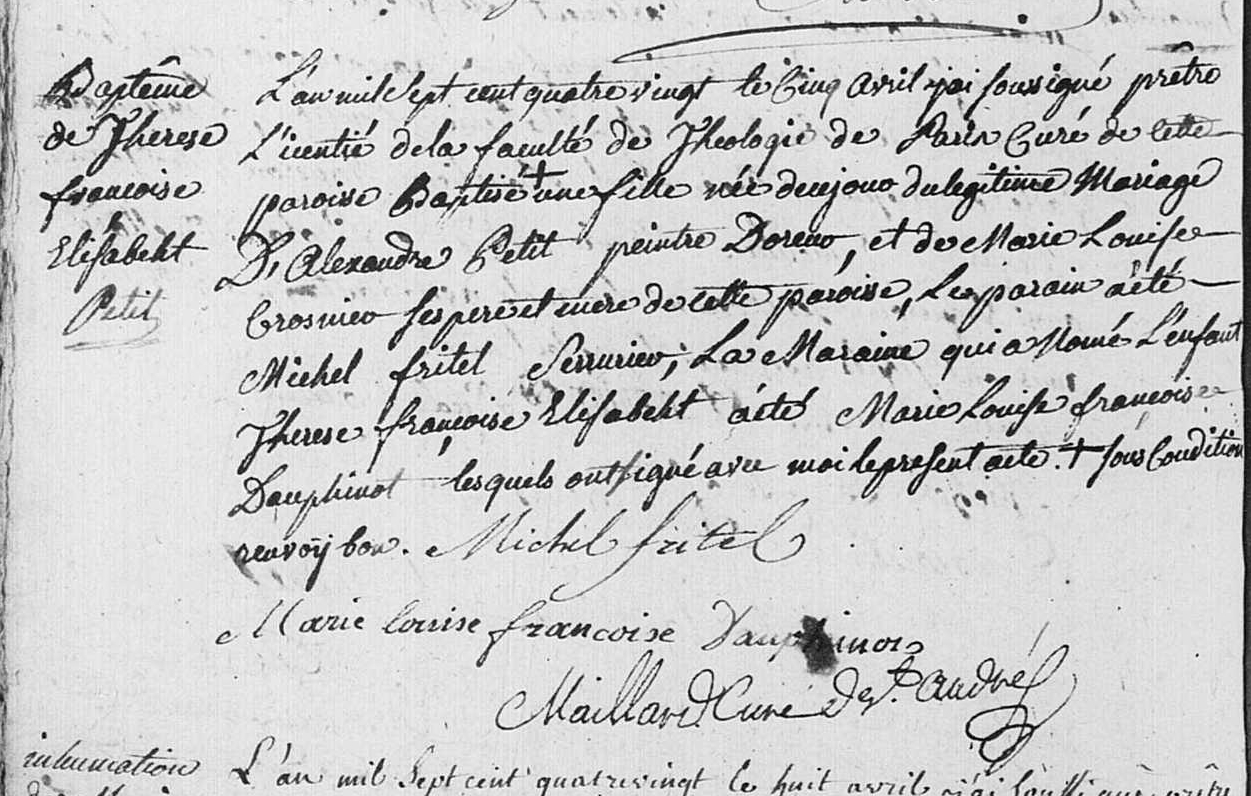 Baptême
de Therese
françoise
Elisabeht
Petit
L'an mil sept cent quatre vingt le Cinq avril j'ai soussigné prêtre
L'icentié dela faculté de Theologie de Paris Curé de cette
paroisse Baptisé + une fille née de ce jour du legitime Mariage
D'Alexandre Petit peintre Doreur, et de Marie Louise
Crosnier ses pere et mere de cette paroisse, Le parain a été
Michel fritel Serrurier, La Maraine qui a Nomé L'enfant
Therese françoise Elisabeht a été Marie Louise françoise
Dauphinot lesquels ont signé avec moi le present acte. + sous Condition
renvoÿ bon. Michel fritel
Marie louise francoise Dauphinot
Maillard Curé de St. André
inhumation
L'an mil sept cent quatrevingt le huit avril j'ai soussigné prêtre